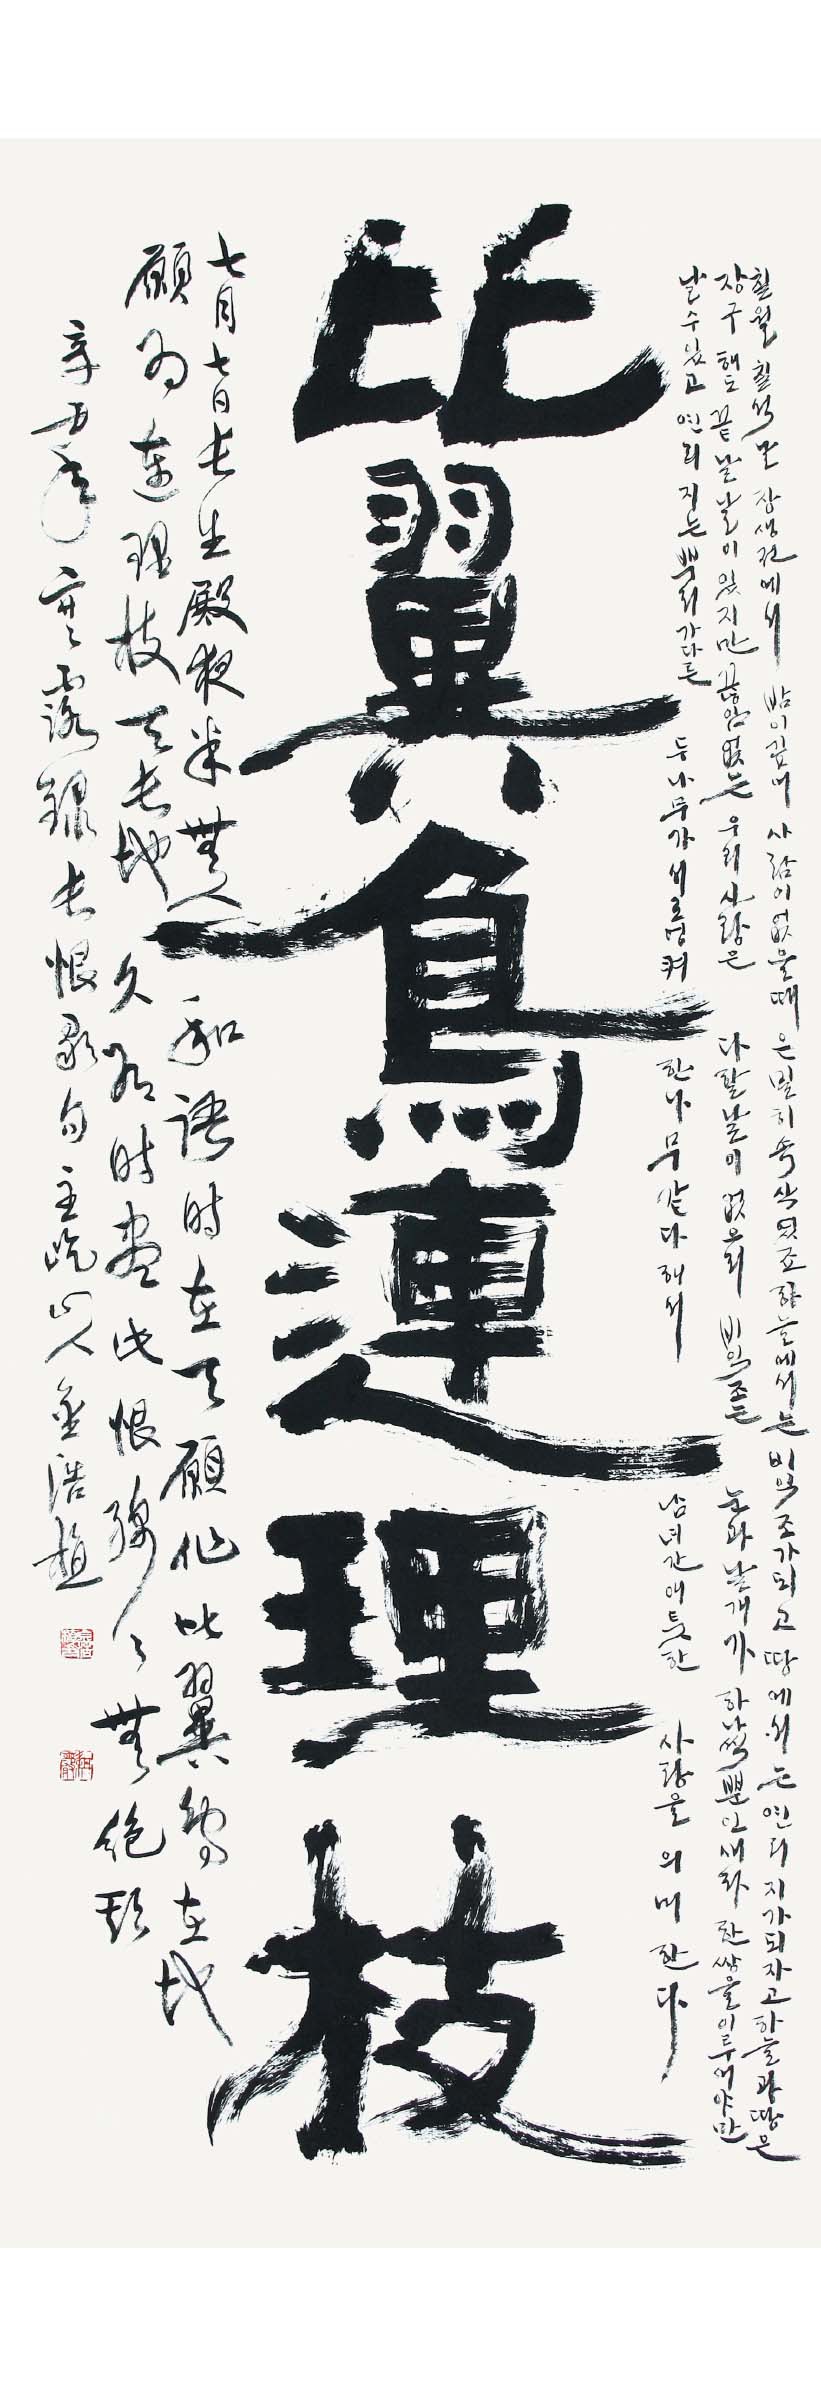 칠월 칠석날 장생전에서 밤이깊어 사람이없을때 은밀히속삭였죠 하늘에서는 비익조가되고 땅에서는 연리지가되자고 하늘과땅은
장구해도 끝날날이있지만 끊임없는 우리사랑은 다할날이없으리 비익조는 눈과날개가 하나씩뿐인새라 한쌍을이루어야만
날수있고 연리지는 뿌리가다른 두나무가서로엉켜 한나무같다해서 남녀간애틋한 사랑을 의미한다
比翼鳥連理枝
七月七日長生殿夜半無人私語時在天願作比翼鳥在地
願爲連理枝天長地久有時盡此恨綿々無絶期
辛丑年寒露錄長恨歌句主屹山人金浩植